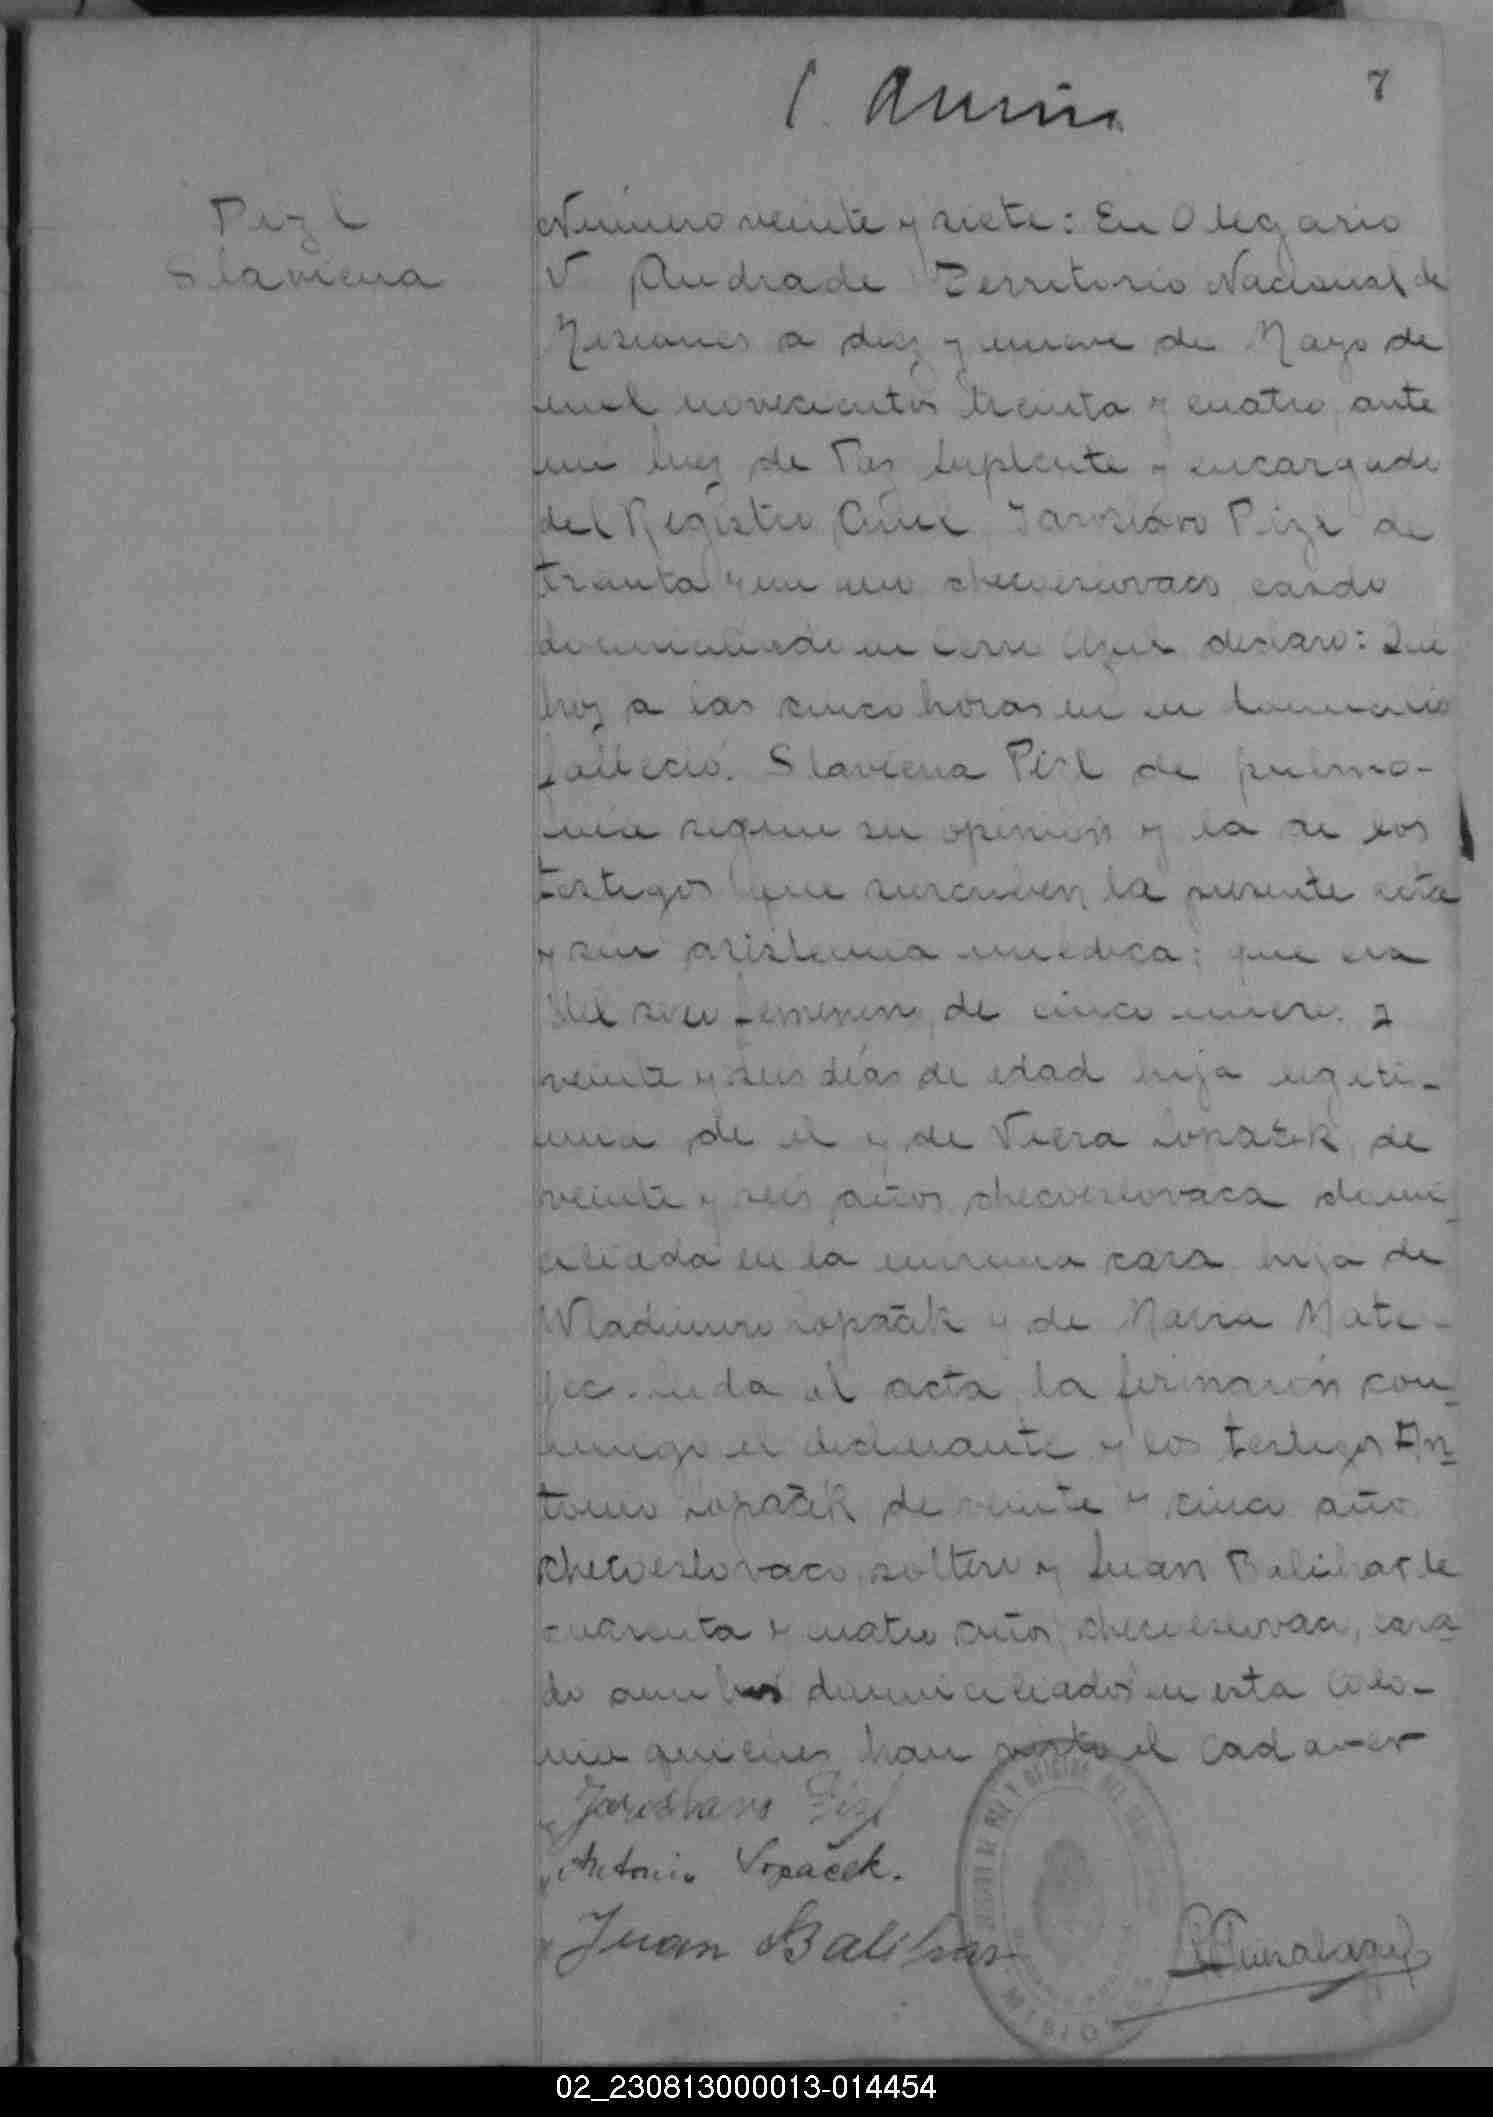 7
Pizl
Slaviena
Número veinte y siete: En Olegario
V Andrade Territorio Nacional de
Misiones a diez y nueve de Mayo de
mil novecientos treinta y cuatro, ante
mi Juez de Paz Suplente y encargado
del Registro Civil, Jaroslavo Pizl de
treinta y un checoeslovaco casado
domiciliado en Cerro Azul declaro: Que
hoy a las cinco horas en su domicilio
falleció. Slaviena Pizl de pulmo-
nia segun su opinion y la de los
testigos que suscriben la presente acta
y sin asistencia medica; que era
del sexo femenino de cinco meses y
veinte y seis dias de edad hija legiti-
ma de el y de Viera Lopaček, de
veinte y seis años checoeslovaca domi
ciliada en la misma casa, hija de
Wladimiro Lopaček y de Maria Mate-
jec. Leida el acta, la firmaron con_
migo el declarante y los testigos An
tonio Lopaček de veinte y cinco años
checoeslovaco, soltero y Juan Balihar de
cuarenta y cuatro años, checoeslovaco, casa
do ambos domiciliados en esta Colo-
nia quienes han visto el cadaver
Jaroslavo Pizl
Antonio Lopaček.
Juan Balihar
MISIONES
02_230813000013-014454